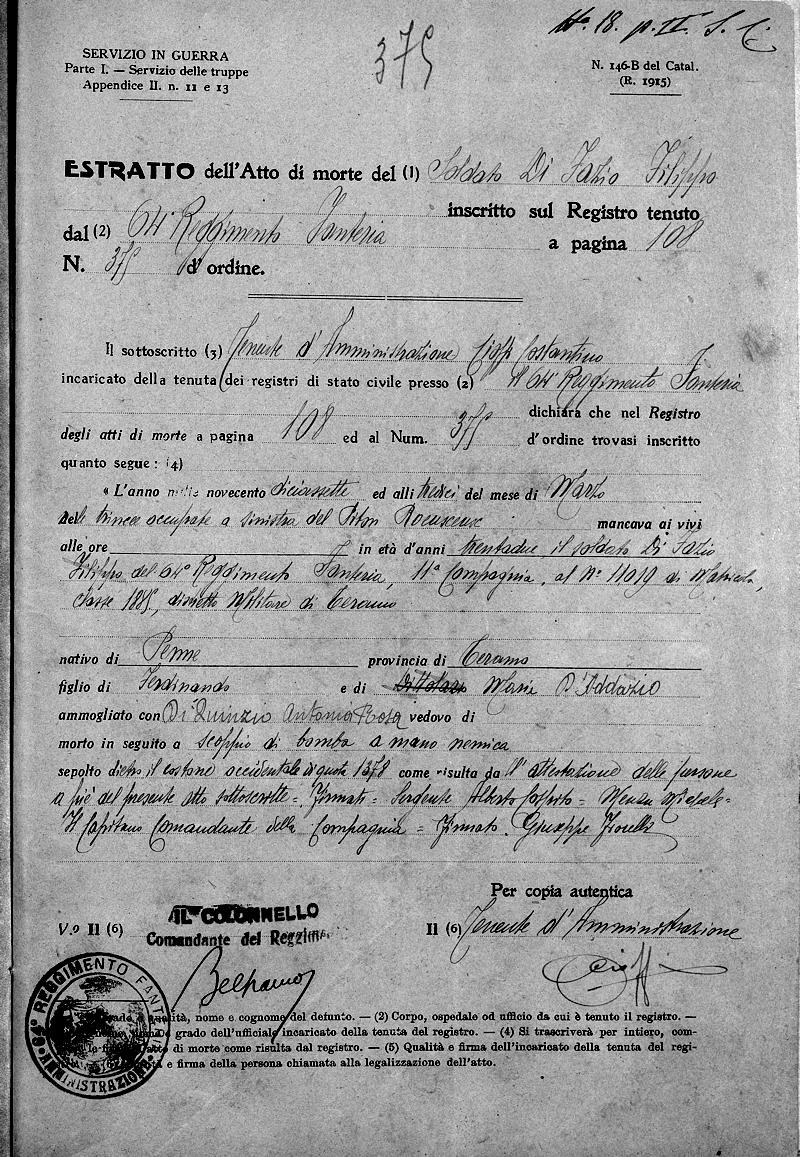 No. 18. p. II. S. C.
375
SERVIZIO IN GUERRA
Parte I. — Servizio delle truppe
Appendice II. n. 11 e 13
N. 146-B del Catal.
(R. 1915)
ESTRATTO dell'Atto di morte del (1) Soldato Di Fazio Filippo
inscritto sul Registro tenuto
dal (2) 64° Reggimento Fanteria a pagina 108
N. 375 d'ordine.
Il sottoscritto (3) Tenente d'Amministrazione Costantino
incaricato della tenuta dei registri di stato civile presso (2) il 64° Reggimento Fanteria
dichiara che nel Registro
degli atti di morte a pagina 108 ed al Num. 375 d'ordine trovasi inscritto
quanto segue: (4)
« L'anno mille novecento diciassette ed alli tredici del mese di Marzo
nelle trincee occupate a sinistra del mancava ai vivi
alle ore in età d'anni trentadue il soldato Di Fazio
Filippo del 64° Reggimento Fanteria, 11a Compagnia, al N° 11019 di Matricola,
classe 1885, distretto Militare di Teramo
nativo di Penne provincia di Teramo
figlio di Ferdinando e di Maria D'Addazio
ammogliato con Di Quinzio Antonia Rosa vedovo di
morto in seguito a scoppio di bomba a mano nemica
sepolto dietro il costone occidentale di quota 1378 come risulta da ll'attestazione delle persone
a piè del presente atto sottoscritte = Firmati = Sergente Alberto =
Il Capitano Comandante della Compagnia = Firmato. Giuseppe
Per copia autentica
V.o Il (6) IL COLONNELLO
Comandante del Reggim.
Il (6) Tenente d'Amministrazione
64° REGGIMENTO FANTERIA
AMMINISTRAZIONE
qualità, nome e cognome del defunto. — (2) Corpo, ospedale od ufficio da cui è tenuto il registro. —
grado dell'ufficiale incaricato della tenuta del registro. — (4) Si trascriverà per intiero, com-
atto di morte come risulta dal registro. — (5) Qualità e firma dell'incaricato della tenuta del regi-
e firma della persona chiamata alla legalizzazione dell'atto.